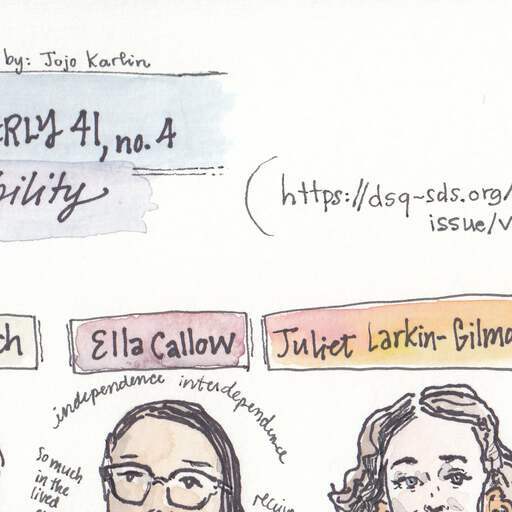 by: Jojo Karlin
ERLY 41, no. 4
bility
(https://dsq-sds.org/
issue/v
ch
Ella Callow
Juliet Larkin-Gilmo
independence interdependence
So much
in the
lived